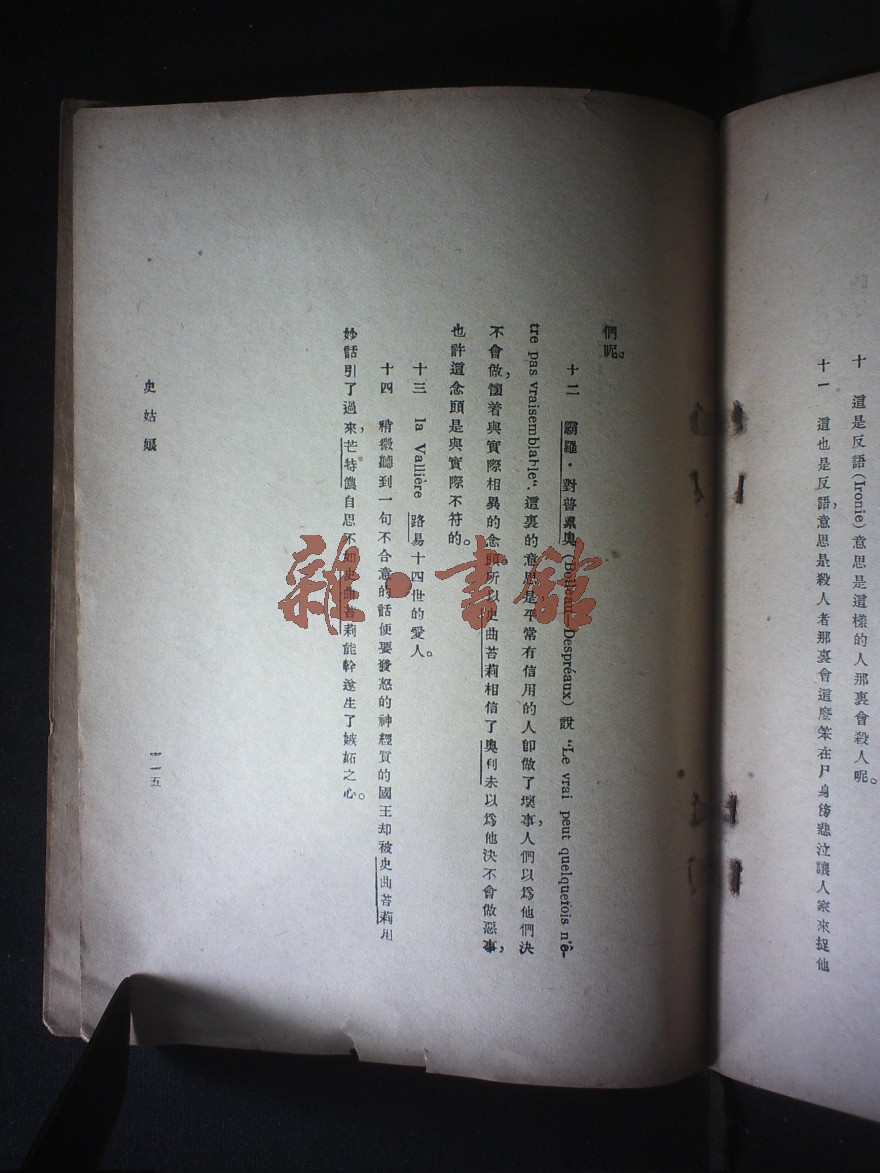 十　這是反語(Ironie)意思是這樣的人那裏會殺人呢。
十一　這也是反語,意思是殺人者那裏會這麼笨在尸身傍悲泣讓人家來捉他
們呢。
十二　霸羅·對普累奧(Boileau Despréaux)說 “Le vrai peut quelquefois n'ê-
tre pas vraisemblable“.這裏的意思是,平常有信用的人卽做了壞事,人們以爲他們決
不會做,懷着與實際相異的念頭。所以史曲苔莉相信了奧利未以爲他決不會做惡事,
也許這念頭是與實際不符的。
十三　la Vallière 路易十四世的愛人。
十四　稍微聽到一句不合意的話便要發怒的神經質的國王却被史曲苔莉用
妙話引了過來,芒特儂自思不如史曲苔莉能幹遂生了嫉妬之心。
史姑娘
一一五
雜·書館